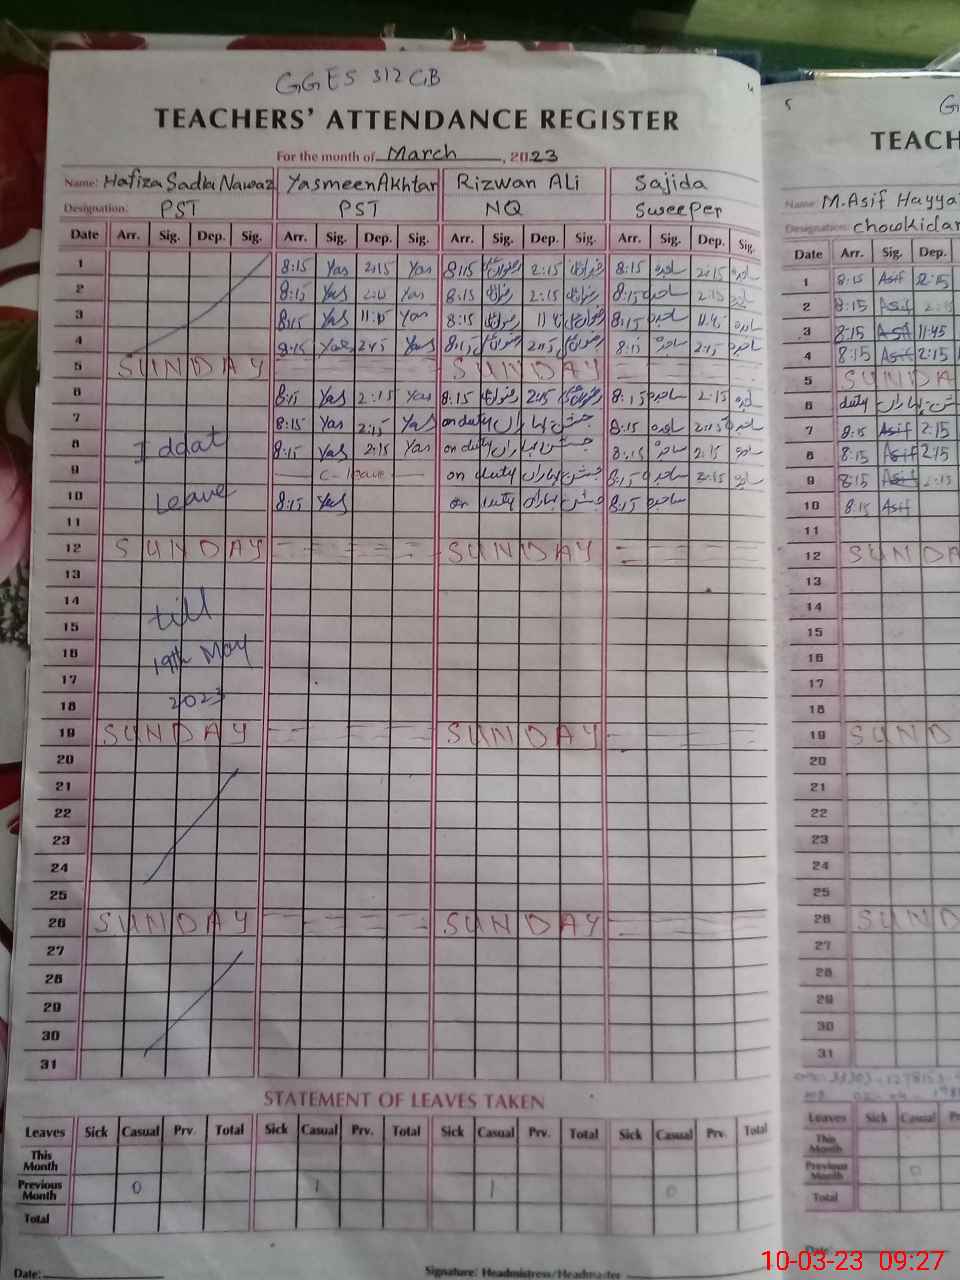 GGES 312 GB
4
TEACHERS' ATTENDANCE REGISTER
For the month of March, 2023
Name: Hafiza Sadia Nawaz Yasmeen Akhtar Rizwan Ali Sajida
Designation: PST PST NQ Sweeper
Date Arr. Sig. Dep. Sig. Arr. Sig. Dep. Sig. Arr. Sig. Dep. Sig. Arr. Sig. Dep. Sig.
1 8:15 Yas 2:15 Yas 8:15 رضوان علی 2:15 رضوان علی 8:15 ساجدہ 2:15 ساجدہ
2 8:15 Yas Yas 8:15 رضوان علی 2:15 رضوان علی 8:15 ساجدہ 2:15 ساجدہ
3 8:15 Yas Yas 8:15 رضوان علی رضوان علی 8:15 ساجدہ 11:45 ساجدہ
4 8:15 Yas 2:45 Yas 8:15 رضوان علی 2:15 رضوان علی 8:15 ساجدہ 2:15 ساجدہ
5 SUNDAY SUNDAY
6 8:15 Yas 2:15 Yas 8:15 رضوان علی 2:15 رضوان علی 8:15 ساجدہ 2:15 ساجدہ
7 8:15 Yas 2:15 Yas on duty جشن بہاراں 8:15 ساجدہ 2:15 ساجدہ
8 Iddat 8:15 Yas 2:15 Yas on duty جشن بہاراں 8:15 ساجدہ 2:15 ساجدہ
9 C-leave on duty جشن بہاراں 8:15 ساجدہ 2:15 ساجدہ
10 Leave 8:15 Yas on duty جشن بہاراں 8:15 ساجدہ
11
12 SUNDAY SUNDAY
13
14 till
15
16 19th May
17
18 2023
19 SUNDAY SUNDAY
20
21
22
23
24
25
26 SUNDAY SUNDAY
27
28
29
30
31
STATEMENT OF LEAVES TAKEN
Leaves Sick Casual Prv. Total Sick Casual Prv. Total Sick Casual Prv. Total Sick Casual Prv. Total
This Month
Previous Month 0 1 1 0
Total
Date: Signature: Headmistress/Headmaster
5
G
TEACH
Name: M.Asif Hayya
Designation: chowkidar
Date Arr. Sig. Dep.
1 8:15 Asif 2:15
2 8:15 Asif 2:15
3 8:15 Asif 11:45
4 8:15 Asif 2:15
5 SUNDA
6 duty جشن بہاراں
7 8:15 Asif 2:15
8 8:15 Asif 2:15
9 8:15 Asif 2:15
10 8:15 Asif
11
12 SUNDA
13
14
15
16
17
18
19 SUND
20
21
22
23
24
25
26 SUND
27
28
29
30
31
Leaves Sick Casual Pr
This Month
Previous Month 0
Total
Date:
10-03-23 09:27